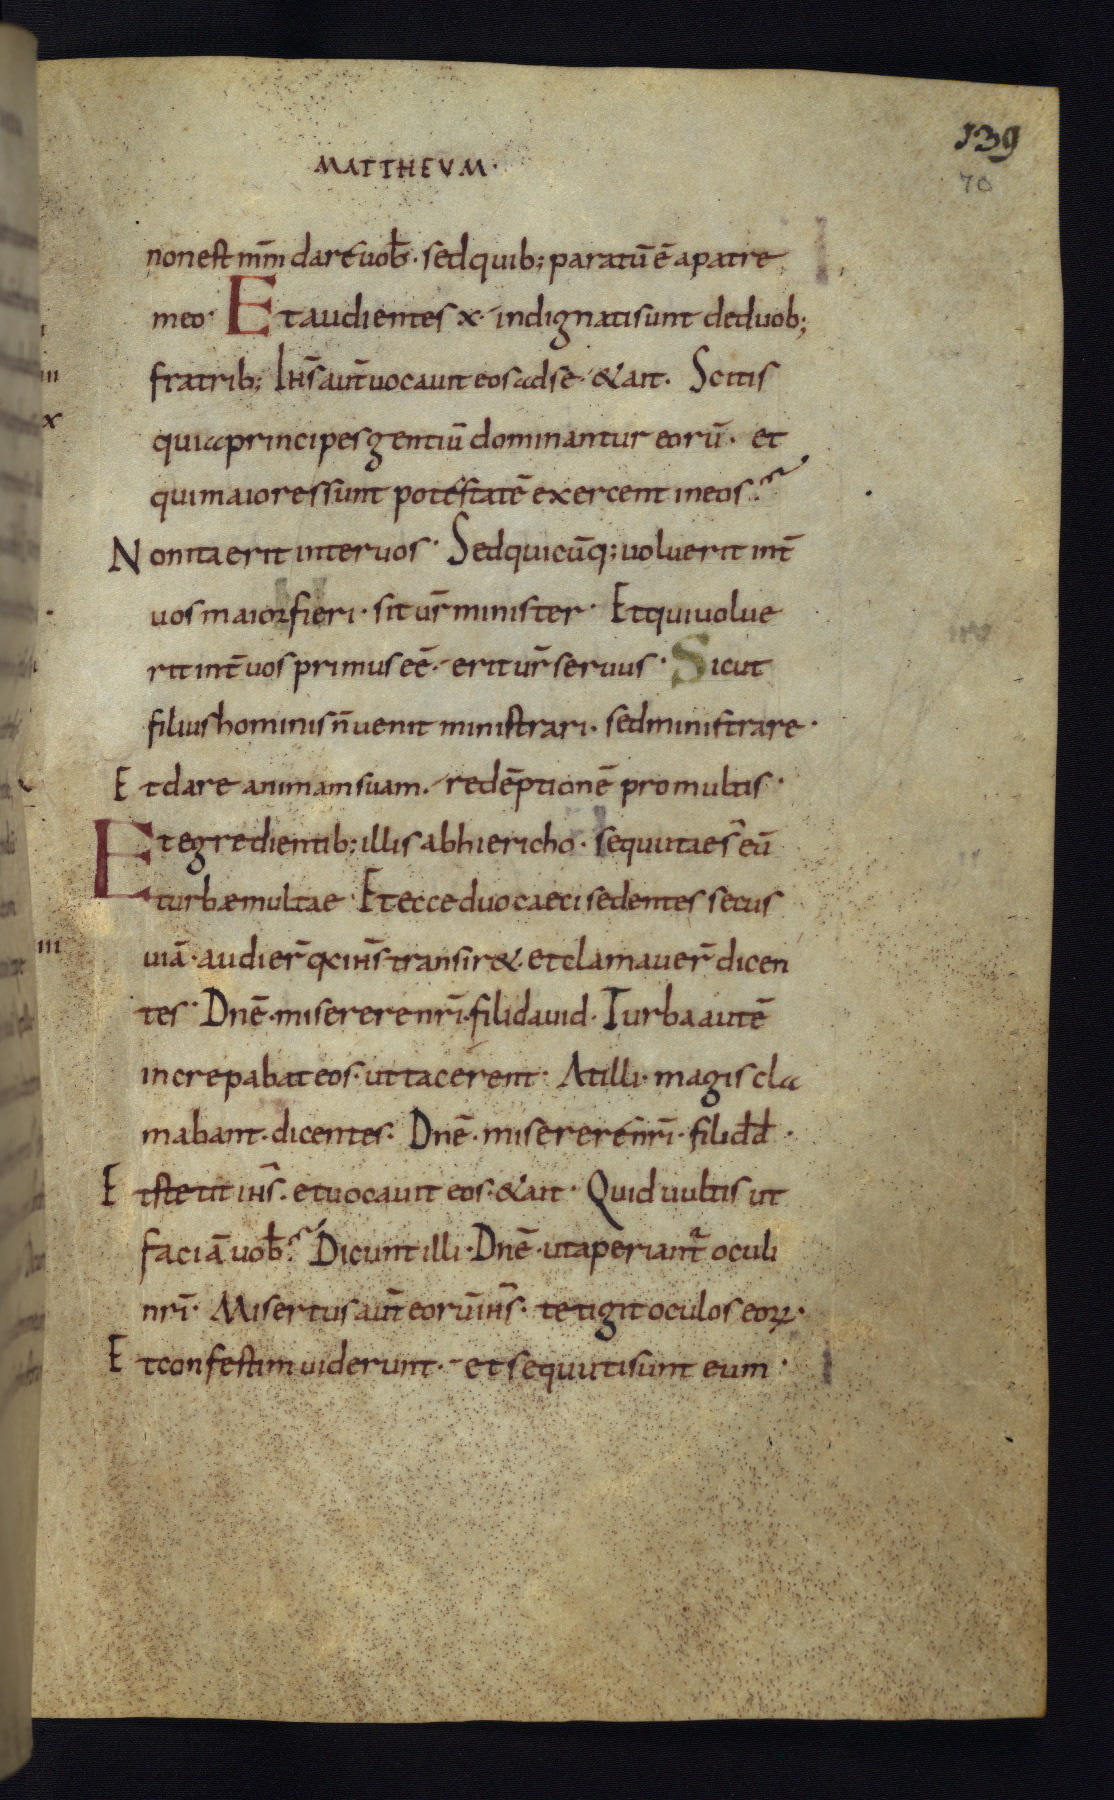 139
70
MATTHEVM·
non est m̅m dare uob̅· sed quib; paratū ē a patre
meo· Et audientes x· indignati sunt de duob;
fratrib; Ihs̅ aut̅ uocauit eos ad se· & ait· Scitis
quia principes gentiū dominantur eorū· et
qui maiores sunt potestatē exercent in eos·
Non ita erit inter uos· Sed quicūq; uoluerit int̅
uos maior fieri· sit ur̅ minister· Et qui uolue
rit int̅ uos primus eē· erit ur̅ seruus· Sicut
filius hominis n̅ uenit ministrari· sed ministrare·
Et dare animam suam· redēptionē pro multis·
Et egredientib; illis ab hiericho· sequutae s̅ eū
turbæ multae· Et ecce duo caeci sedentes secus
uiā· audier̅ q̅ ihs̅ transir&· et clamauer̅ dicen
tes· Dn̅ē· miserere nr̅i· fili dauid· Turba autē
increpabat eos· ut tacerent· At illi· magis cla
mabant· dicentes· Dn̅ē· miserere nr̅i· fili dd̅·
Et stetit ihs̅· et uocauit eos· & ait· Quid uultis ut
faciā uob̅· Dicunt illi· Dn̅ē· ut aperiant̅ oculi
nr̅i· Misertus aut̅ eorū ihs̅· tetigit oculos eoꝝ·
Et confestim uiderunt· et sequuti sunt eum·
III
X
III